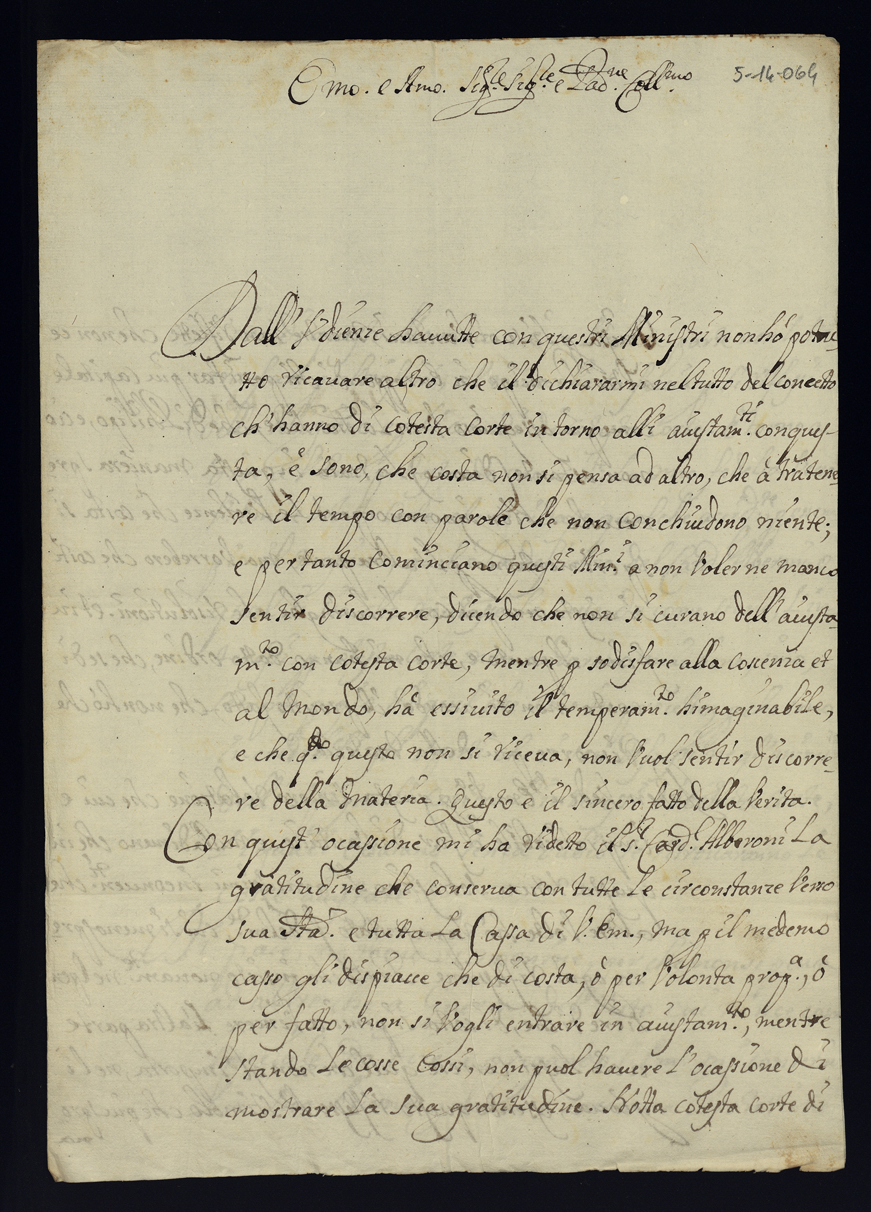 5-14-064
Emo. e Rmo. Sig.re Sig.re e Pad.ne Coll.mo
Dall' Udienze havutte con questi Ministri non hó potu-
tto ricavare altro che il dichiararmi nel tutto del concetto
ch' hanno di cotesta Corte intorno alli aiustam.ti con ques-
ta, é sono, che costa non si pensa ad altro, che á tratene-
re il tempo con parole che non conchiudono niente;
e per tanto cominciano questi Min.i a non voler ne manco
sentir discorrere, dicendo che non si curano dell' aiusta-
m.to con cotesta corte, mentre p sodisfare alla coscenza et
al Mondo, há essivito il temperam.to himaginabile,
e che q.do questo non si riceva, non vuol sentir discorre-
re della materia. Questo e il sincero fatto della verita.
Con quest' ocassione mi ha ridetto il S.r Card. Alberoni La
gratitudine che conserva con tutte Le circonstanze verso
sua Sta. e tutta La Cassa di V. Em., ma p il medemo
casso gli dispiace che di costa, ó per volonta prop.a, ó
per fatto, non si vogli entrare in aiustam.to, mentre
stando Le cosse cossi, non puol havere l' ocassione di
mostrare La sua gratitudine. Notta cotesta corte di